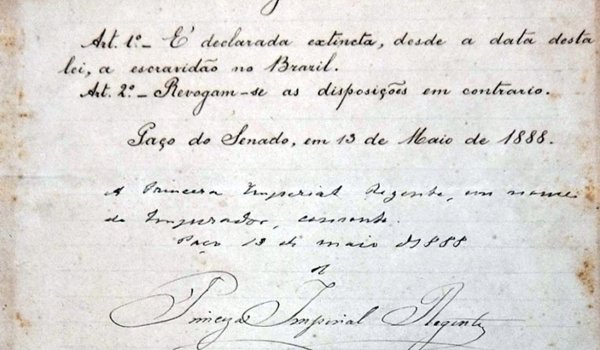 Art. 1º — É declarada extincta, desde a data desta
lei, a escravidão no Brazil.
Art. 2º — Revogam-se as disposições em contrario.
Paço do Senado, em 13 de Maio de 1888.
A Princeza Imperial Regente, em nome
do Imperador, consente.
Paço 13 de maio de 1888
Princeza Imperial Regente